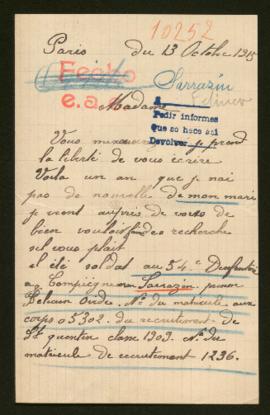 10252
Paris du 13 Octobre 1915
Fecho
e.a.
Sarrazin
Madame
A
Pedir informes
Que se hace así
Devolver
Vous je prend
la liberté de vous écrire
Voila un an que j nai
pas de nouvelle de mon mari
je vient auprès de vous de
bien vouloir recherche
sil vous plait
il été soldat au 54e
a Compiègne Sarrazin
No du matricule au
corps 05302. du recrutement de
St quentin classe 1903. No du
matricule de recrutement 1236.